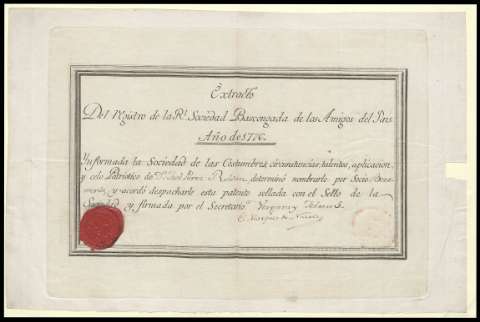 Extracto
Del Registro de la Rl. Sociedad Bascongada de los Amigos del Pais
Año de 1776.
Informada la Sociedad de las Costumbres, circunstancias, talentos, aplicacion,
y celo Patriotico de Dn. determinó nombrarle por Socio Bene
merito y acordó despacharle esta patente sellada con el Sello de la
Sociedad y firmada por el Secretario. Vergara y
El Marques de